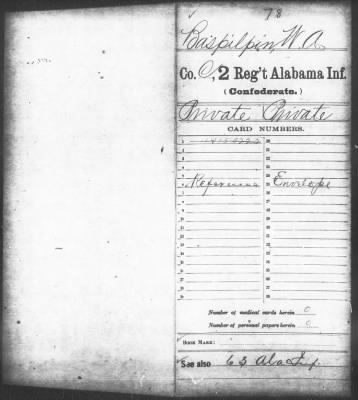 78
Baspilpin, W. A.
Co. C, 2 Reg't Alabama Inf.
(Confederate.)
Private Private
CARD NUMBERS.
Reference Envelope
Number of medical cards herein 0
Number of personal papers herein 0
BOOK MARK:
See also 63 Ala Inf.